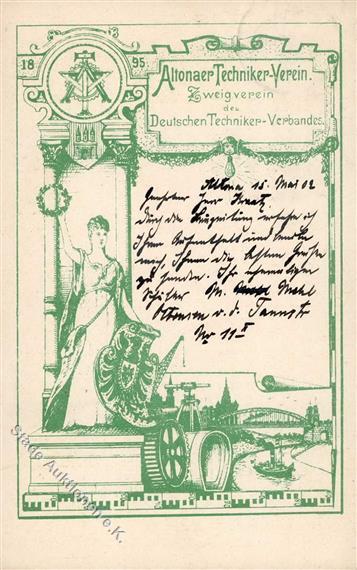 18 95
Altonaer Techniker-Verein.
Zweigverein
des
Deutschen Techniker-Verbandes.
Altona 15. Mai 02
Geehrter Herr
durch die
Ihren Aufenthalt und
mich, Ihnen die besten Grüße
zu senden. Ihr ehemaliger
Schüler M.
Ottensen v. d. Tannstr
Nr 11 II
Stade Auktionen e.K.